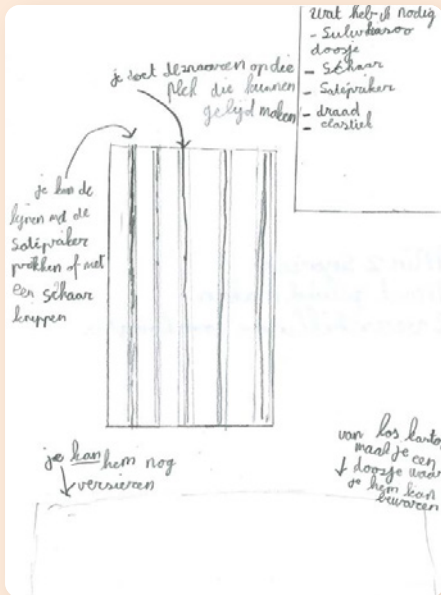 wat heb ik nodig
- Suluhkaroo
doosje
- Schaar
- Satéprikker
- draad
- elastiek
je doet de snaaren op die
plek die kunnen
gelijd maken
je kan de
lijnen met de
satéprikker
prikken of met
een schaar
knippen
je kan hem nog
versieren
van los karto
maak je een
doosje waar
je hem kan
bewaren